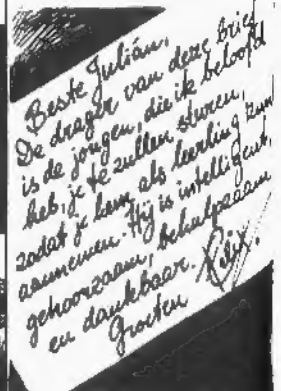 Beste Julián,
De drager van deze brief
is de jongen, die ik beloofd
heb, je te zullen sturen,
zodat je hem als leerling kun
aannemen. Hij is intelligent,
gehoorzaam, behulpzaam
en dankbaar.
Groeten Felix.